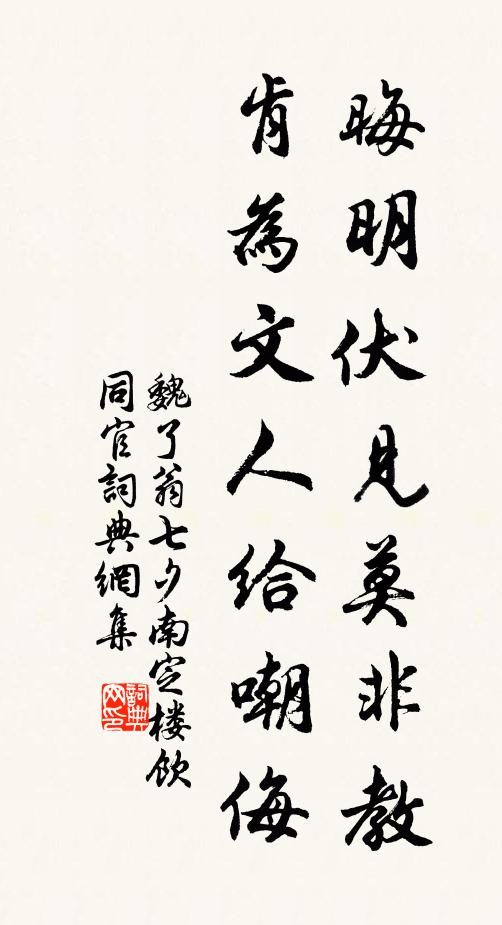 晦明伏見莫非教
肯為文人給嘲侮
魏了翁七夕南定楼飲
同官詞典網集
詞典网印